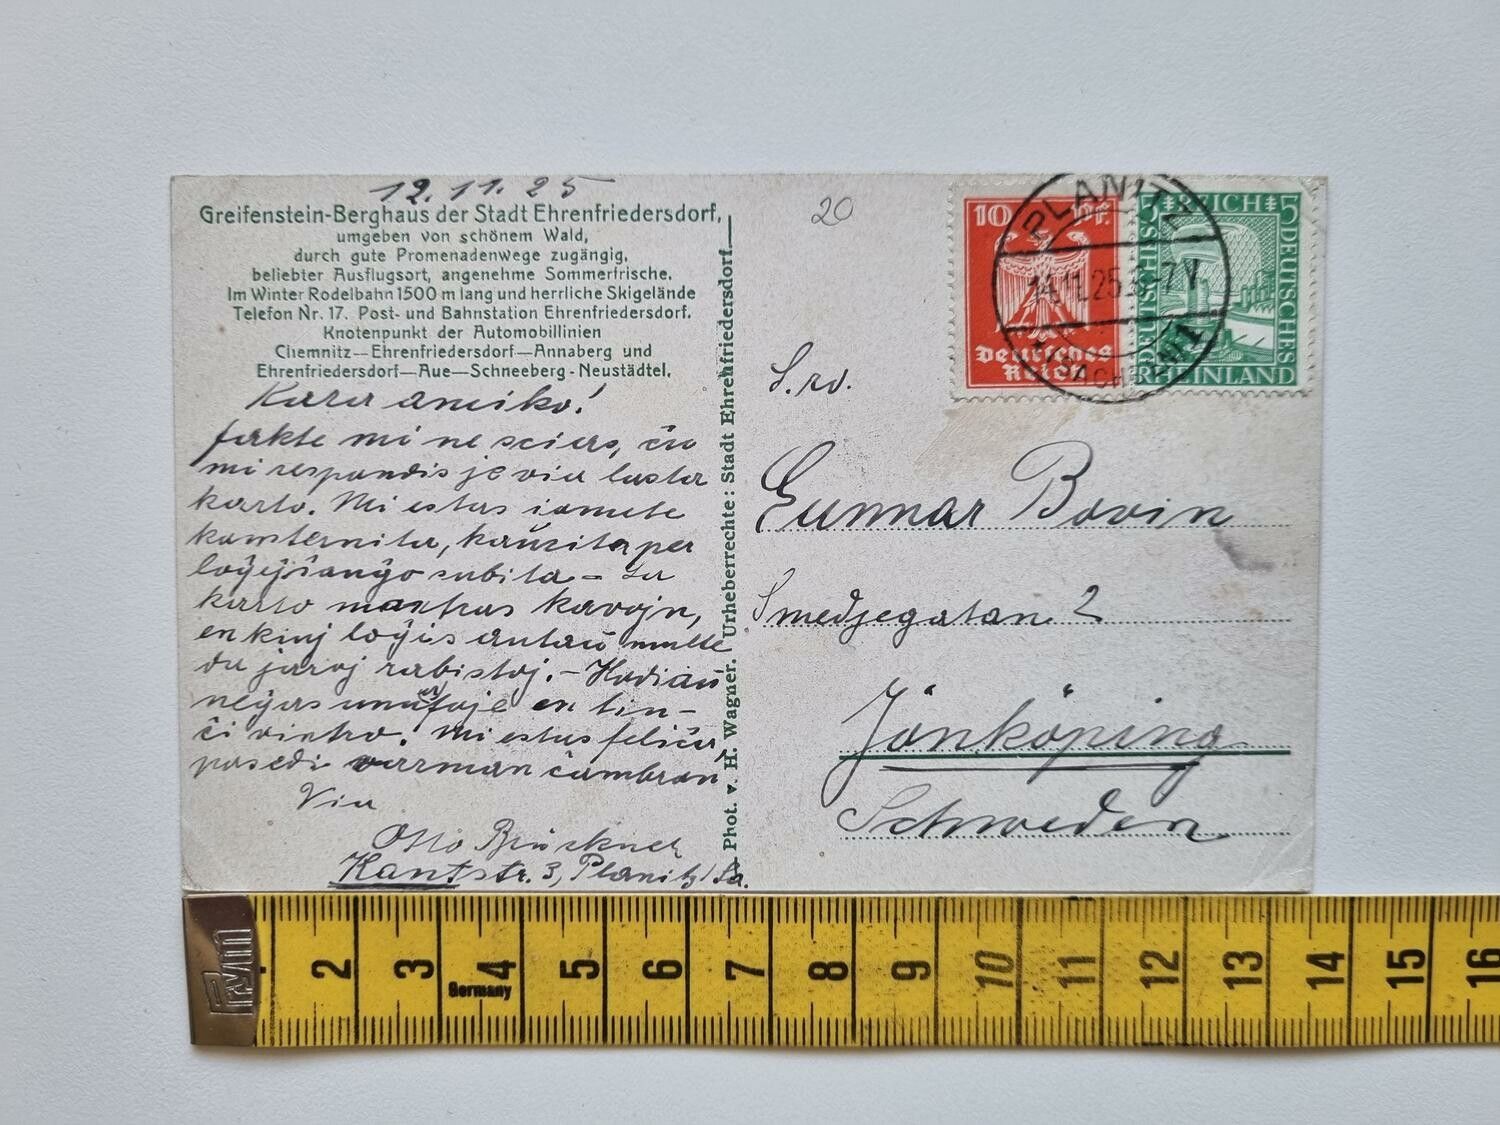 12.11.25
Greifenstein-Berghaus der Stadt Ehrenfriedersdorf,
umgeben von schönem Wald,
durch gute Promenadenwege zugängig,
beliebter Ausflugsort, angenehme Sommerfrische.
Im Winter Rodelbahn 1500 m lang und herrliche Skigelände
Telefon Nr. 17. Post- und Bahnstation Ehrenfriedersdorf.
Knotenpunkt der Automobillinien
Chemnitz—Ehrenfriedersdorf—Annaberg und
Ehrenfriedersdorf—Aue—Schneeberg-Neustädtel.
Kara amiko!
fakte mi ne scias, ĉu
mi respondis je via lasta
karto. Mi estas iomete
konsternita, kaŭzita per
loĝejŝanĝo subita – La
karto montras kavojn,
en kiuj loĝis antaŭ multe
da jaroj rabistoj. – Hodiaŭ
neĝas unuafoje en tiu-
ĉi vintro. Mi estas feliĉa,
posedi varman ĉambron
Via
Otto Brückner
Kantstr. 3, Planitz/Sa.
Phot. v. H. Wagner. Urheberrechte: Stadt Ehrenfriedersdorf.
20
10 Pf.
Deutsches
Reich
5 REICH 5
DEUTSCHES
DEUTSCHES
RHEINLAND
PLANITZ
14.11.25. 6-7 V
S-ro.
Gunnar Bovin
Smedjegatan 2
Jönköping
Schweden
Prym
Germany
2 3 4 5 6 7 8 9 10 11 12 13 14 15 16